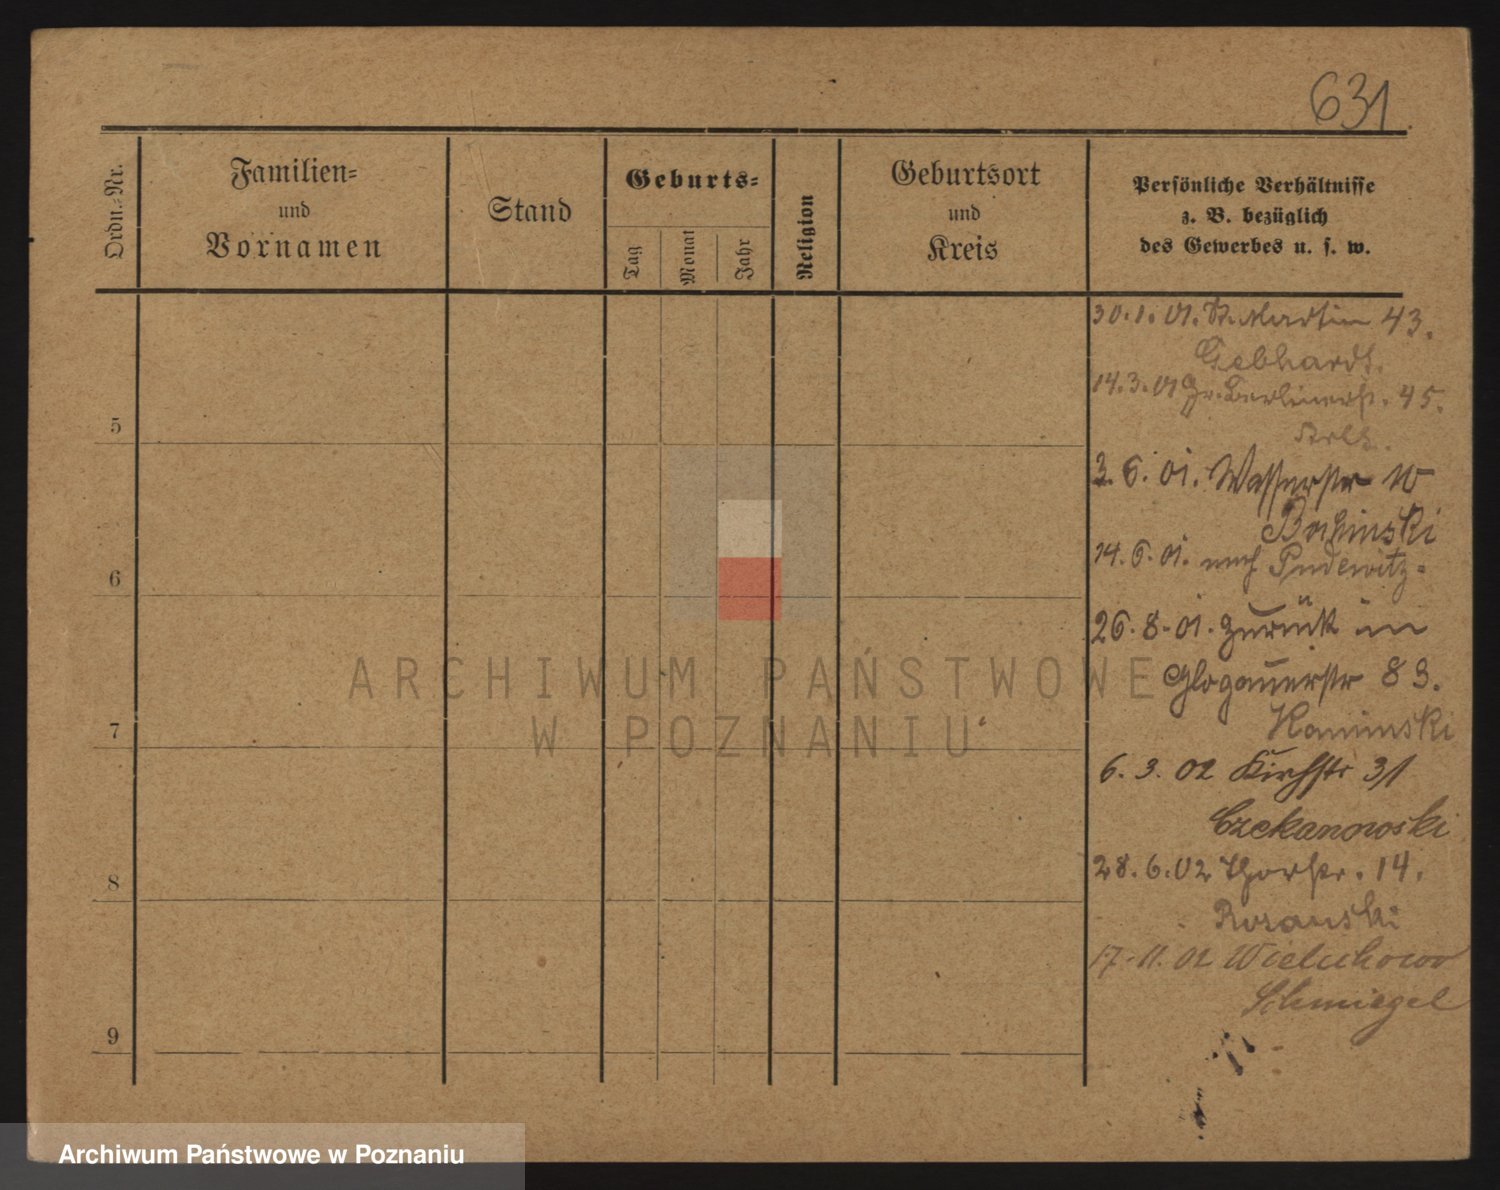 631
Ordn.-Nr.
Familien-
und
Vornamen
Stand
Geburts-
Tag
Monat
Jahr
Religion
Geburtsort
und
Kreis
Persönliche Verhältnisse
z. B. bezüglich
des Gewerbes u. s. w.
30.1.01. St. Martin 43.
Gebhardt.
14.3.01 Gr. Berlinerstr. 45.
5
3.6.01. Wasserstr 10
14.6.01. nach Pudewitz.
6
26.8.01. zurück in
Glogauerstr 83.
Kaminski
7
6.3.02 Kirchstr 31
Czekanowski
28.6.02 Thorstr. 14.
8
17.11.02 Wielichowo
Schmiegel
9
ARCHIWUM PAŃSTWOWE
W POZNANIU
Archiwum Państwowe w Poznaniu